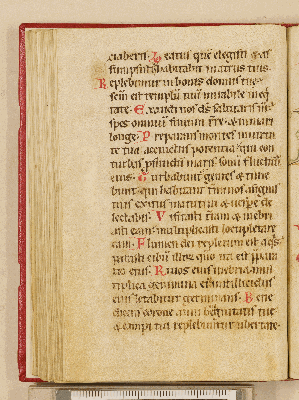 ciaberis. Beatus quē elegisti ⁊ as
sumpsisti habitabit ī atriis tuis.
Replebimur in bonis domus tue
scm̄ est templū tuū mirabile in eq̄
tate. Exaudi nos ds̄ salutaris nr̄
spes omniū finium tr̄e ⁊ in mari
longe. Preparans montes in virtu
te tua accinctus potentia qui con
turbas pfundū maris sonū fluctuū
eius. Turbabunt gentes ⁊ time
bunt qui habitant fines a signis
tuis exitus matutini ⁊ vespe de
lectabis. Visitasti tr̄am ⁊ inebri
asti eam multiplicasti locupletare
eam. Flumen dei repletum est aq̄s
parasti cibū illorū qm̄ ita est ppara
tio eius. Rivos eius inebria mul
tiplica genimina eius ī stillicidiis
eius letabitur germinans. Bene
dices corone anni benignitatis tue
⁊ campi tui replebuntur ubertate.